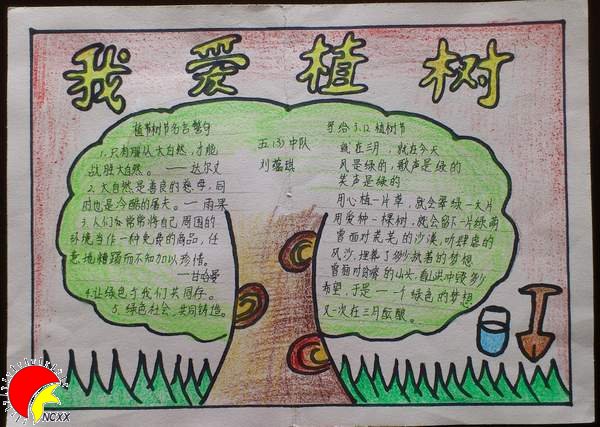 我爱植树
植树节名言警句
1.只有服从大自然,才能
战胜大自然。——达尔文
2.大自然是善良的慈母,同
时也是冷酷的屠夫。——雨果
3.人们常常将自己周围的
环境当作一种免费的商品,任
意地糟蹋而不知加以珍惜。
——甘哈曼
4.让绿色与我们共同存。
5.绿色社会,共同铸造。
五(3)中队
刘蕴琪
写给3.12植树节
就在三月,就在今天
风是绿的,歌声是绿的
笑声是绿的
用心植一片草,就会翠绿一大片
用爱种一棵树,就会留下一片绿荫
曾面对茫茫的沙漠,听肆虐的
风沙,埋葬了多少执着的梦想
曾面对贫瘠的山头,看山洪冲毁多少
希望,于是一个绿色的梦想
又一次在三月酝酿。
NCXX